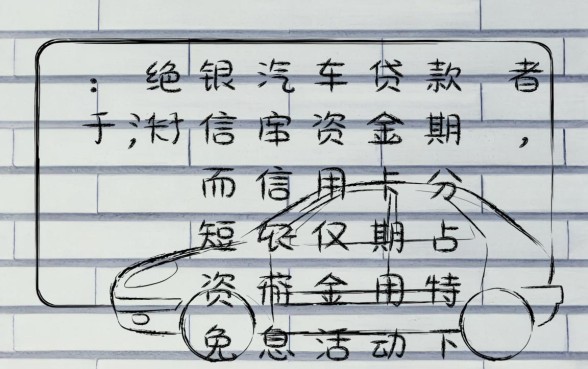 ：绝银汽车贷款者
于，对信审资金期，
而信用卡分
短较仅期占
资薪金用特
免息活动下